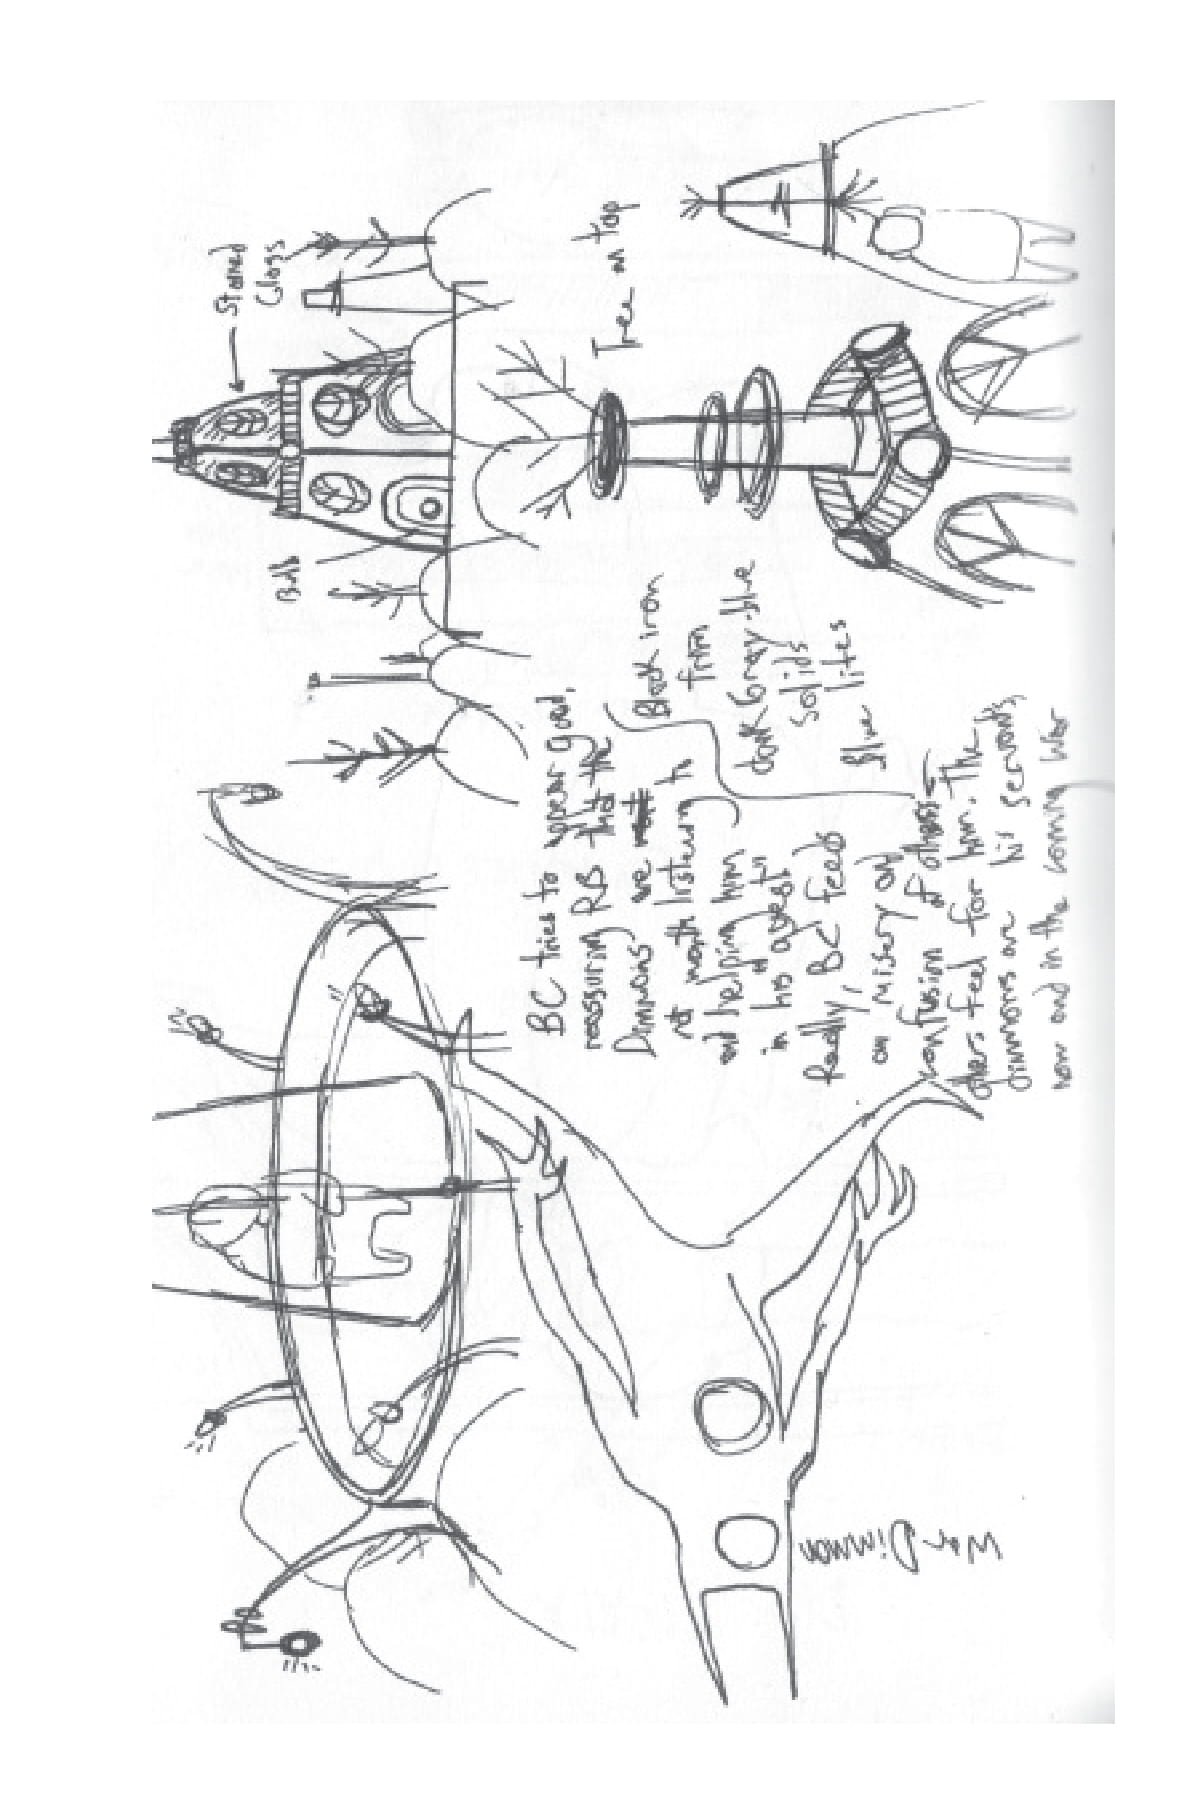 Stained
Glass
Bulb
Tree on top
Black iron
trim
dark Gray-blue
solids
Blue lites
BC tries to appear good,
reassuring RB that the
Dimmons are
not worth listening to
and helping him
in his "quest"
Really, BC feeds
on misery and
confusion of others
others feel for him. The
dimmons are his servants,
now and in the coming War
War Dimmon